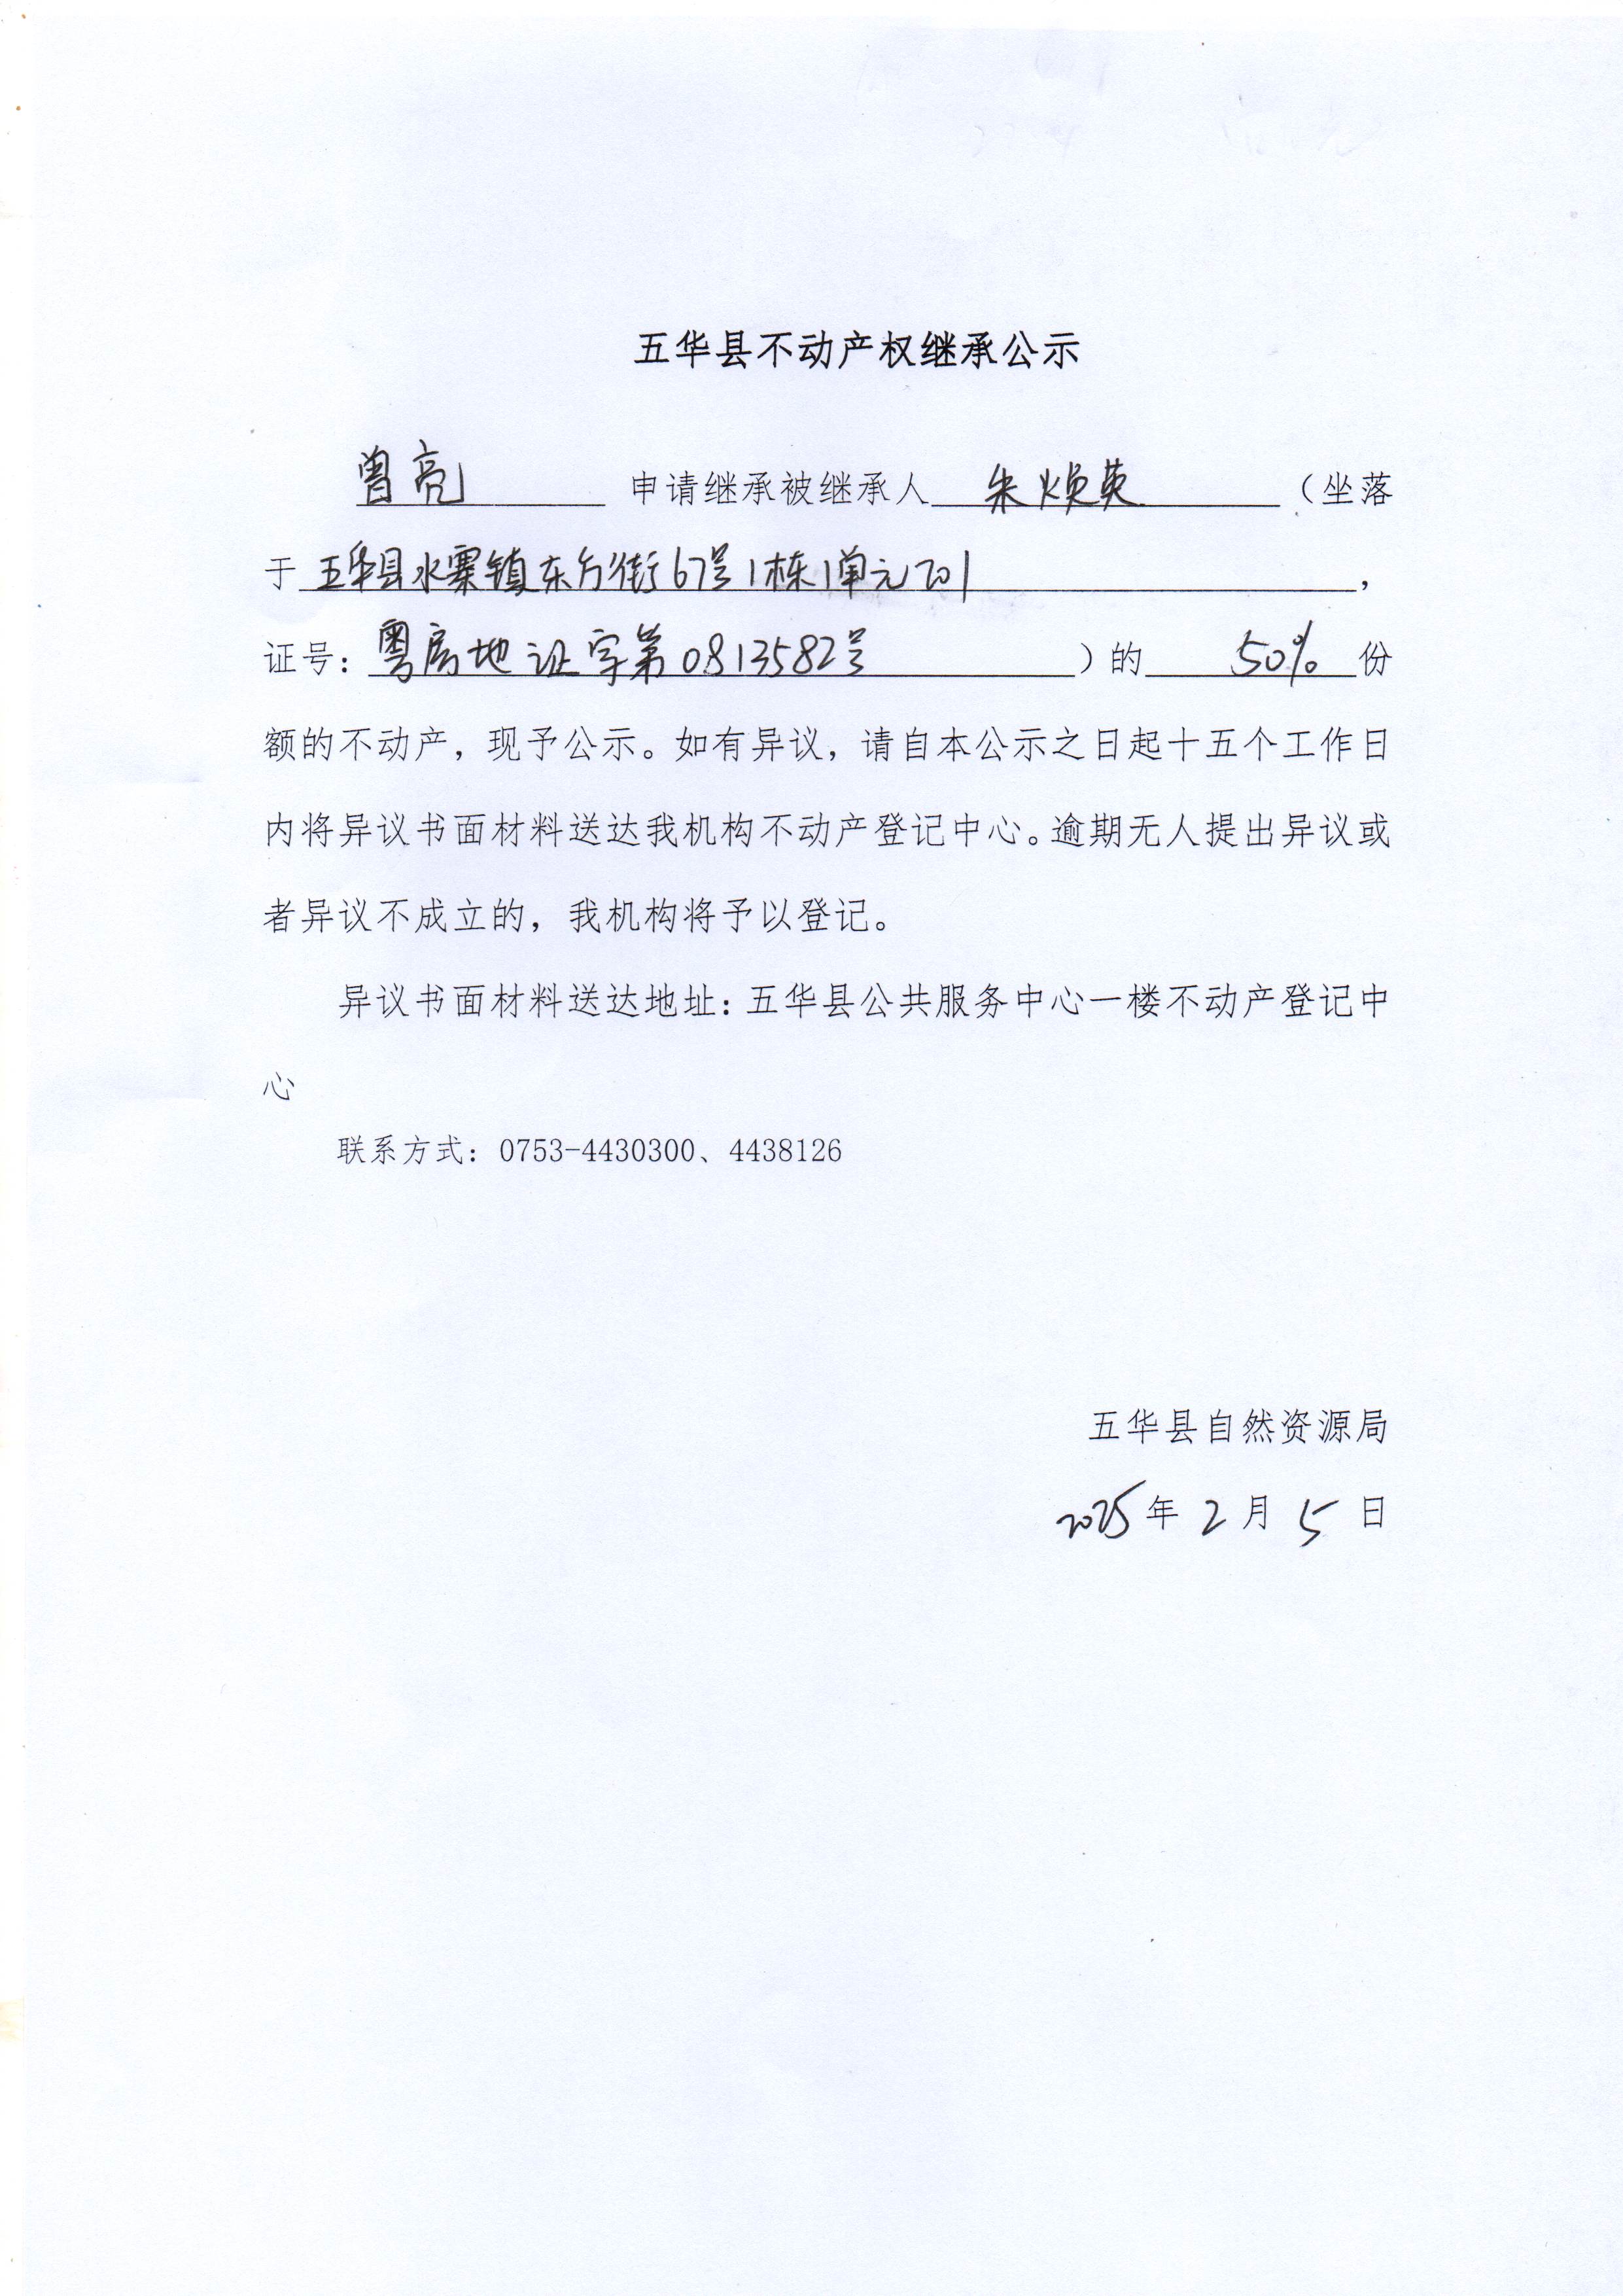 五华县不动产权继承公示
曾亮 申请继承被继承人 朱焕英 （坐落
于 五华县水寨镇东方街67号1栋1单元701 ，
证号：粤房地证字第0813582号 ）的 50% 份
额的不动产，现予公示。如有异议，请自本公示之日起十五个工作日
内将异议书面材料送达我机构不动产登记中心。逾期无人提出异议或
者异议不成立的，我机构将予以登记。
异议书面材料送达地址：五华县公共服务中心一楼不动产登记中
心
联系方式：0753-4430300、4438126
五华县自然资源局
2025年2月5日